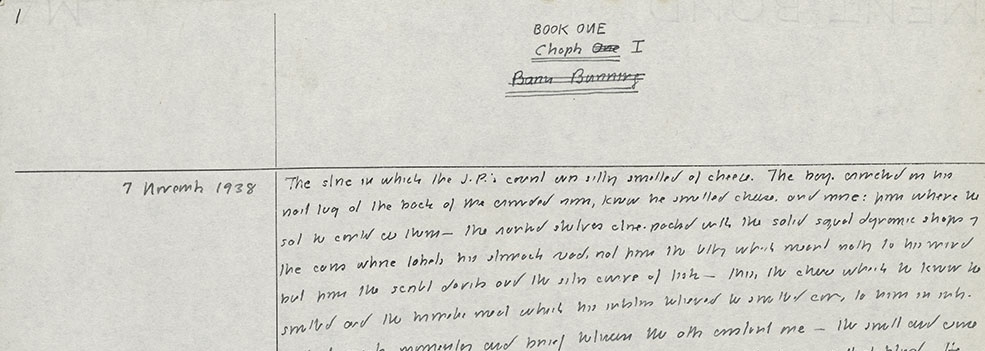 1
BOOK ONE
Chapter One I
Barn Burning
7 November 1938
The store in which the J.P.'s court was sitting smelled of cheese. The boy, crouched on his
nail keg at the back of the crowded room, knew he smelled cheese, and more: from where he
sat he could see them — the ranked shelves close-packed with the solid squat dynamic shapes of
tin cans whose labels his stomach read, not from the lettering which meant nothing to his mind
but from the scarlet devils and the silver curve of fish — this, the cheese which he knew he
smelled and the hermetic meat which his intestines believed he smelled
momentary and brief between the other constant one — the smell and sense